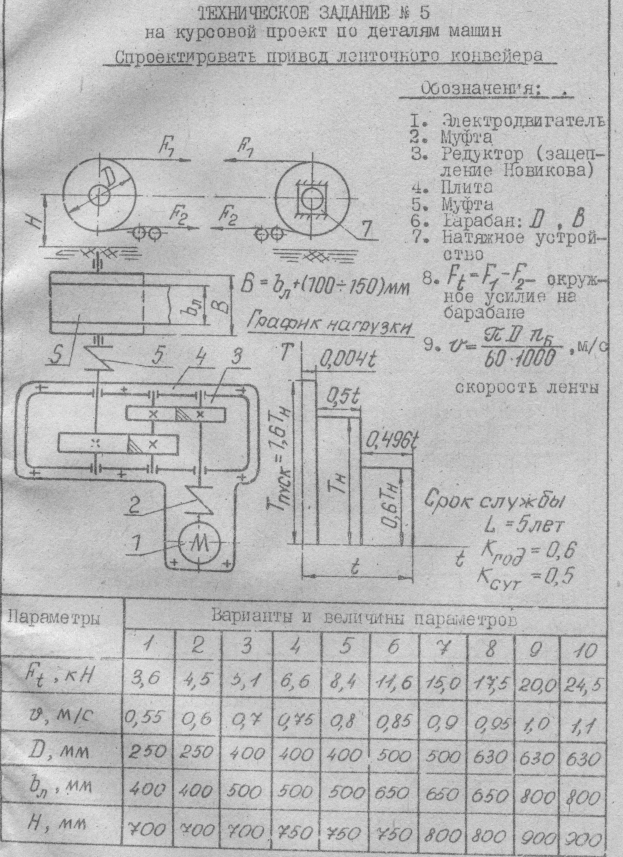 ТЕХНИЧЕСКОЕ ЗАДАНИЕ № 5
на курсовой проект по деталям машин
Спроектировать привод ленточного конвейера
Обозначения:
1. Электродвигатель
2. Муфта
3. Редуктор (зацеп-
ление Новикова)
4. Плита
5. Муфта
6. Барабан: D , B
7. Натяжное устрой-
ство
8. Ft = F1 - F2 - окруж-
ное усилие на
барабане
9. v = πDnБ / 60·1000 , м/с
скорость ленты
F1 F1
D
H
F2 F2
7
B = bл + (100÷150) мм
bл
B
График нагрузки
T
0,004t
0,5t
0,496t
Tпуск = 1,6Tн
Tн
0,6Tн
t
t
5 4 3
2
1
М
Срок службы
L = 5 лет
Kгод = 0,6
Kсут = 0,5
Параметры Варианты и величины параметров
1 2 3 4 5 6 7 8 9 10
Ft , кН 3,6 4,5 5,1 6,6 8,4 11,6 15,0 17,5 20,0 24,5
v, м/с 0,55 0,6 0,7 0,75 0,8 0,85 0,9 0,95 1,0 1,1
D, мм 250 250 400 400 400 500 500 630 630 630
bл , мм 400 400 500 500 500 650 650 650 800 800
H, мм 700 700 700 750 750 750 800 800 900 900